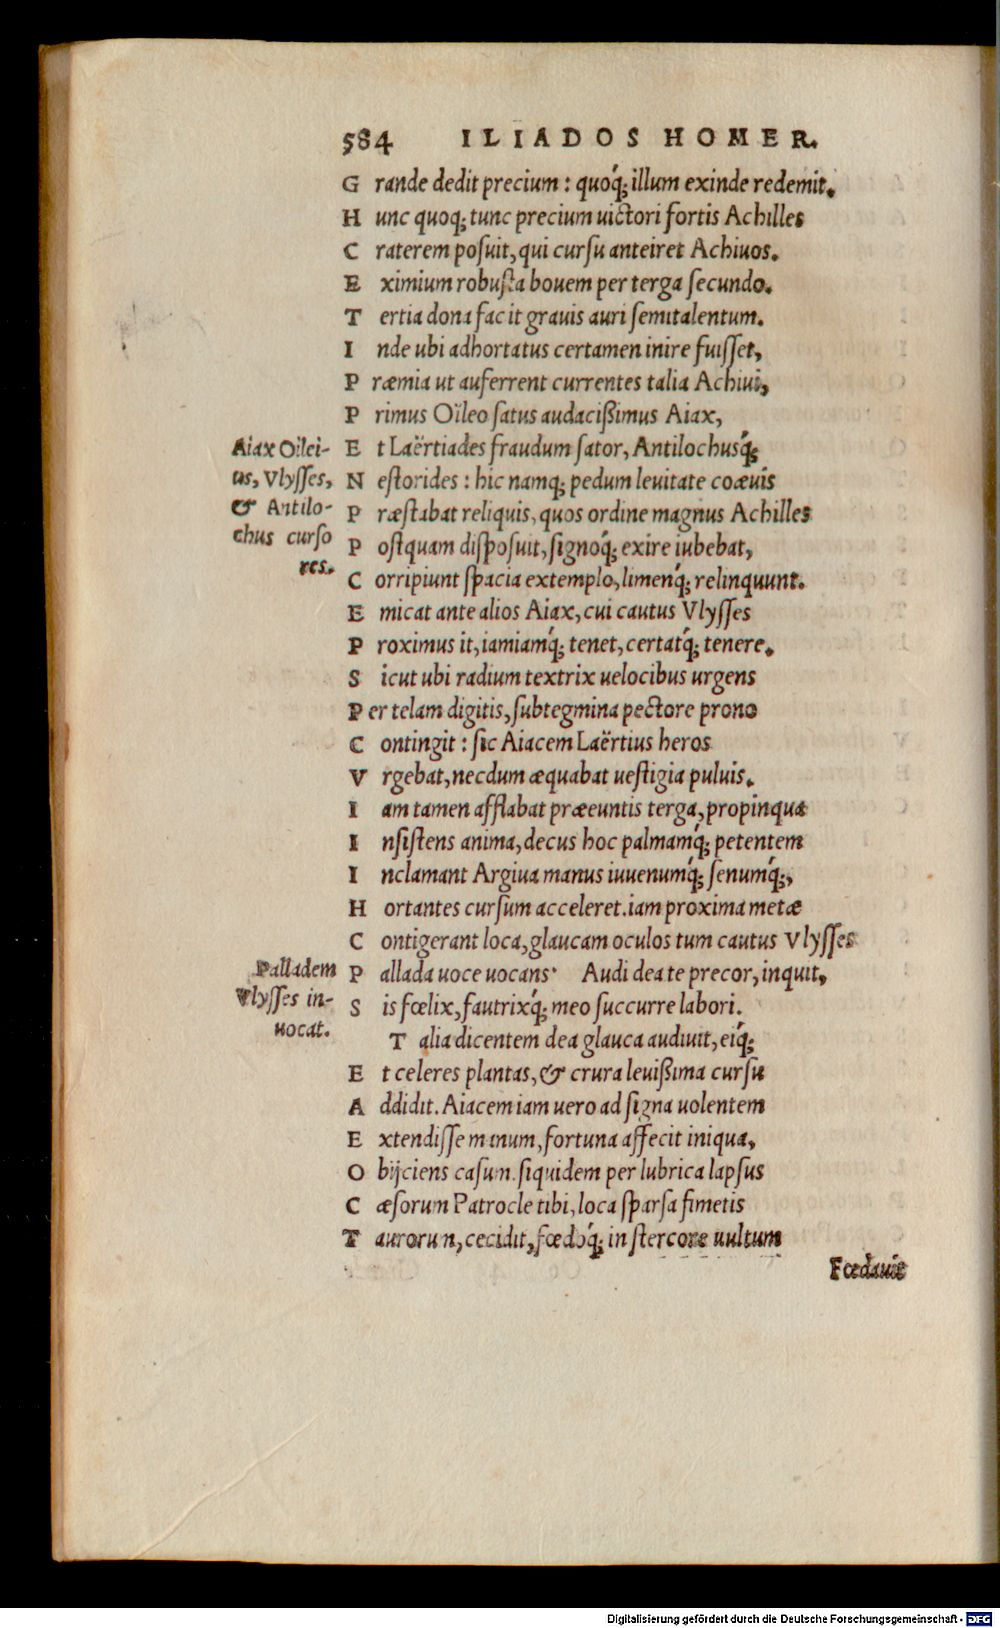 584 ILIADOS HOMER.
Grande dedit precium : quoq́; illum exinde redemit.
Hunc quoq; tunc precium uictori fortis Achilles
Craterem posuit, qui cursu anteiret Achiuos.
Eximium robusta bouem per terga secundo.
Tertia dona facit grauis auri semitalentum.
Inde ubi adhortatus certamen inire fuisset,
Præmia ut auferrent currentes talia Achiui,
Primus Oïleo satus audacißimus Aiax,
Et Laërtiades fraudum sator, Antilochusq́;
Nestorides : hic namq; pedum leuitate coæuis
Præstabat reliquis, quos ordine magnus Achilles
Postquam disposuit, signoq́; exire iubebat,
Corripiunt spacia extemplo, limenq́; relinquunt.
Emicat ante alios Aiax, cui cautus Vlysses
Proximus it, iamiamq́; tenet, certatq́; tenere.
Sicut ubi radium textrix uelocibus urgens
Per telam digitis, subtegmina pectore prono
Contingit : sic Aiacem Laërtius heros
Vrgebat, necdum æquabat uestigia puluis.
Iam tamen afflabat præeuntis terga, propinqua
Insistens anima, decus hoc palmamq́; petentem
Inclamant Argiua manus iuuenumq́; senumq́;,
Hortantes cursum acceleret. iam proxima metæ
Contigerant loca, glaucam oculos tum cautus Vlysses
Pallada uoce uocans· Audi dea te precor, inquit,
Sis fœlix, fautrixq́; meo succurre labori.
Talia dicentem dea glauca audiuit, eiq́;
Et celeres plantas, & crura leuißima cursu
Addidit. Aiacem iam uero ad signa uolentem
Extendisse manum, fortuna affecit iniqua,
Obijciens casum. siquidem per lubrica lapsus
Cæsorum Patrocle tibi, loca sparsa fimetis
Taurorum, cecidit, fœdoq́; in stercore uultum
Fœdauit
Aiax Oilei-
us, Vlysses,
& Antilo-
chus curso
res.
Palladem
Vlysses in-
uocat.
Digitalisierung gefördert durch die Deutsche Forschungsgemeinschaft - DFG